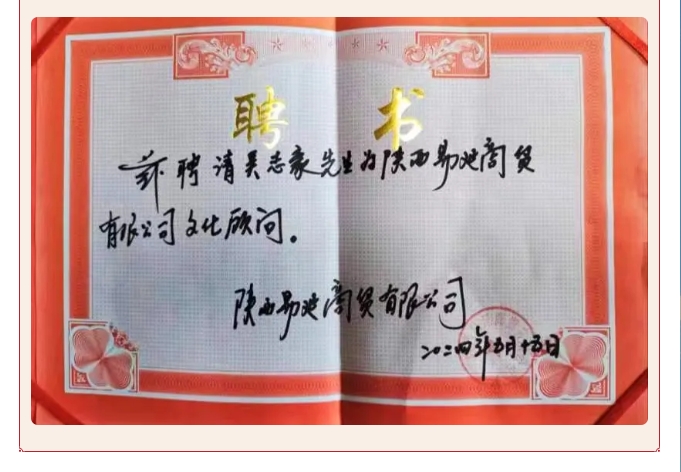 聘书
兹聘请吴志先生为陕西易商贸
有限公司文化顾问。
陕西易商贸有限公司
二〇二四年五月十五日